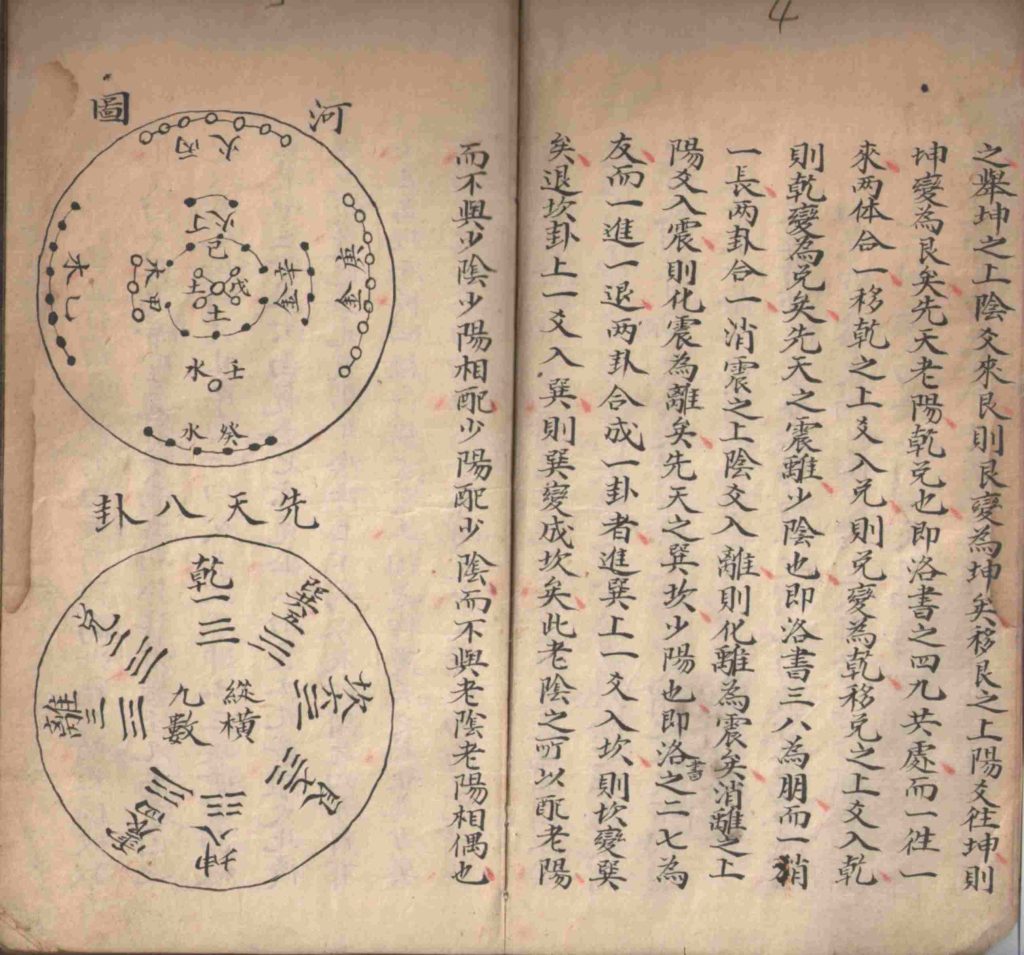 4
之舉坤之上陰爻來艮則艮變為坤矣移艮之上陽爻徃坤則
坤變為艮矣先天老陽乾兌也即洛書之四九共處而一徃一
來两体合一移乾之上爻入兌則兌變為乾移兌之上爻入乾
則乾變為兌矣先天之震離少陰也即洛書三八為朋而一消
一長两卦合一消震之上陰爻入離則化離為震矣消離之上
陽爻入震則化震為離矣先天之巽坎少陽也即洛書之二七為
友而一進一退两卦合成一卦者進巽上一爻入坎則坎變巽
矣退坎卦上一爻入巽則巽變成坎矣此老陰之所以配老陽
而不與少陰少陽相配少陽配少陰而不與老陰老陽相偶也
河圖
火丙
火丁
己
戊
土
土
庚金
辛金
木乙
木甲
水壬
水癸
先天八卦
乾一
兌二
離三
震四
巽五
坎六
艮七
坤八
縱橫
九數